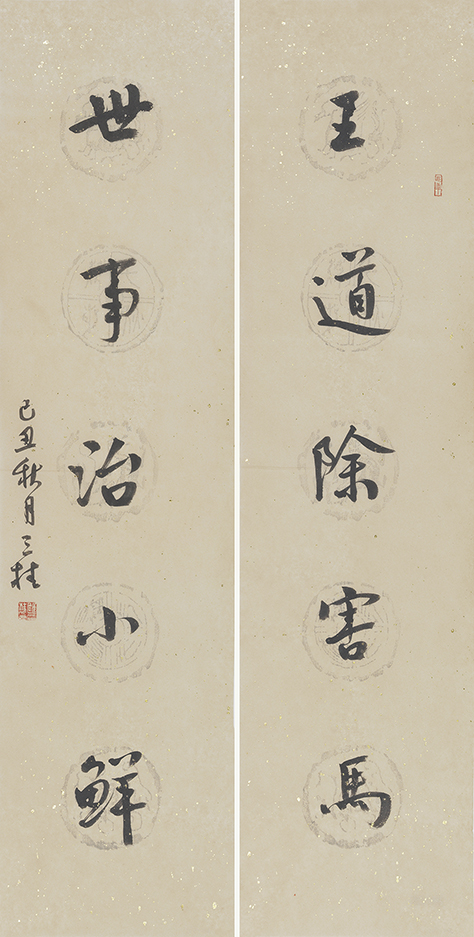 王道除害馬
世事治小鮮
己丑秋月三桂